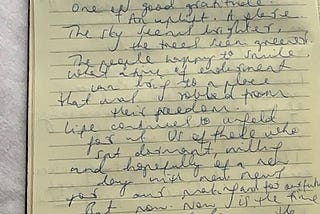 One of good gratitude.
An uplift. A please.
The sky seems brighter,
the trees seem greener.
The people happy to smile
what a time of enlightenment
can bring to a place
that was robbed from
their freedom.
Life continues to unfold
for all of those who
sat dormant, milling
and hopefully of a new
day with new news
for our
But now. Now is the time